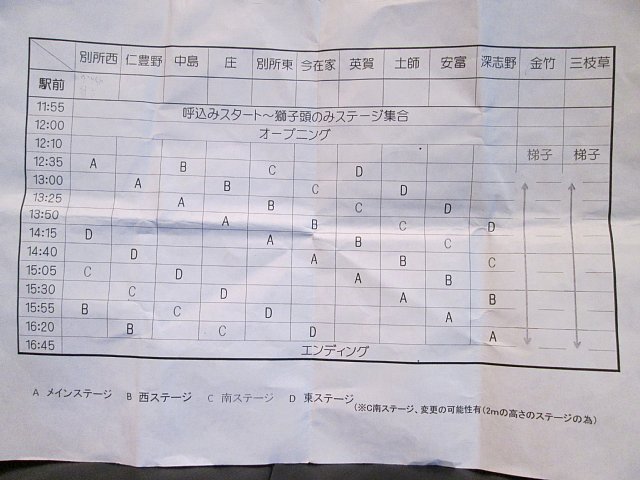 別所西 仁豊野 中島 庄 別所東 今在家 英賀 土師 安富 深志野 金竹 三枝草
駅前
11:55 呼込みスタート～獅子頭のみステージ集合
12:00 オープニング
12:10 梯子 梯子
12:35 A B C D
13:00 A B C D
13:25 A B C D
13:50 A B C D
14:15 D A B C
14:40 D A B C
15:05 C D A B
15:30 C D A B
15:55 B C D A
16:20 B C D A
16:45 エンディング
A メインステージ B 西ステージ C 南ステージ D 東ステージ
(※C南ステージ、変更の可能性有(2mの高さのステージの為)